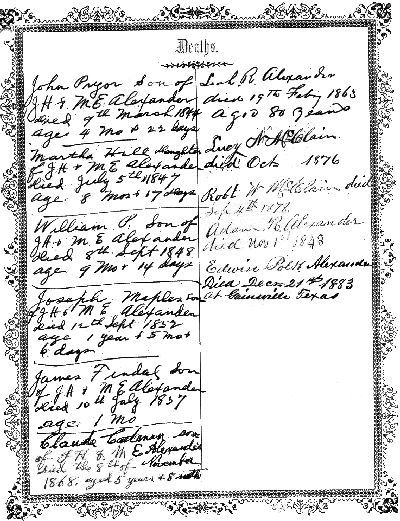 Deaths.
John Pryor Son of
J H & M E Alexander
died 9th March 1844
age 4 Mo & 22 days
Martha Hill daughter
of J H & M E Alexander
died July 5th 1847
age 8 Mos & 17 days
William P. Son of
J H & M E Alexander
died 8th Sept 1848
age 9 Mo & 14 days
Joseph Maples son
of J H & M E Alexander
died 12th Sept 1852
age 1 year & 5 mos &
6 days
James Tindal Son
of J H & M E Alexander
died 10th July 1857
age 1 Mo
Claude son
of J. H. & M. E. Alexander
died the 8th of November
1868. aged 5 years & 8 mths
R. Alexander
died 19th Feby 1863
aged 80 years
Lucy N McClain
died Oct 1876
Robt W McClain died
Sep 4th 1876
Adam R Alexander
died Nov 1st 1848
Edwin Polk Alexander
Died Decm 21st 1883
at Gainsville Texas